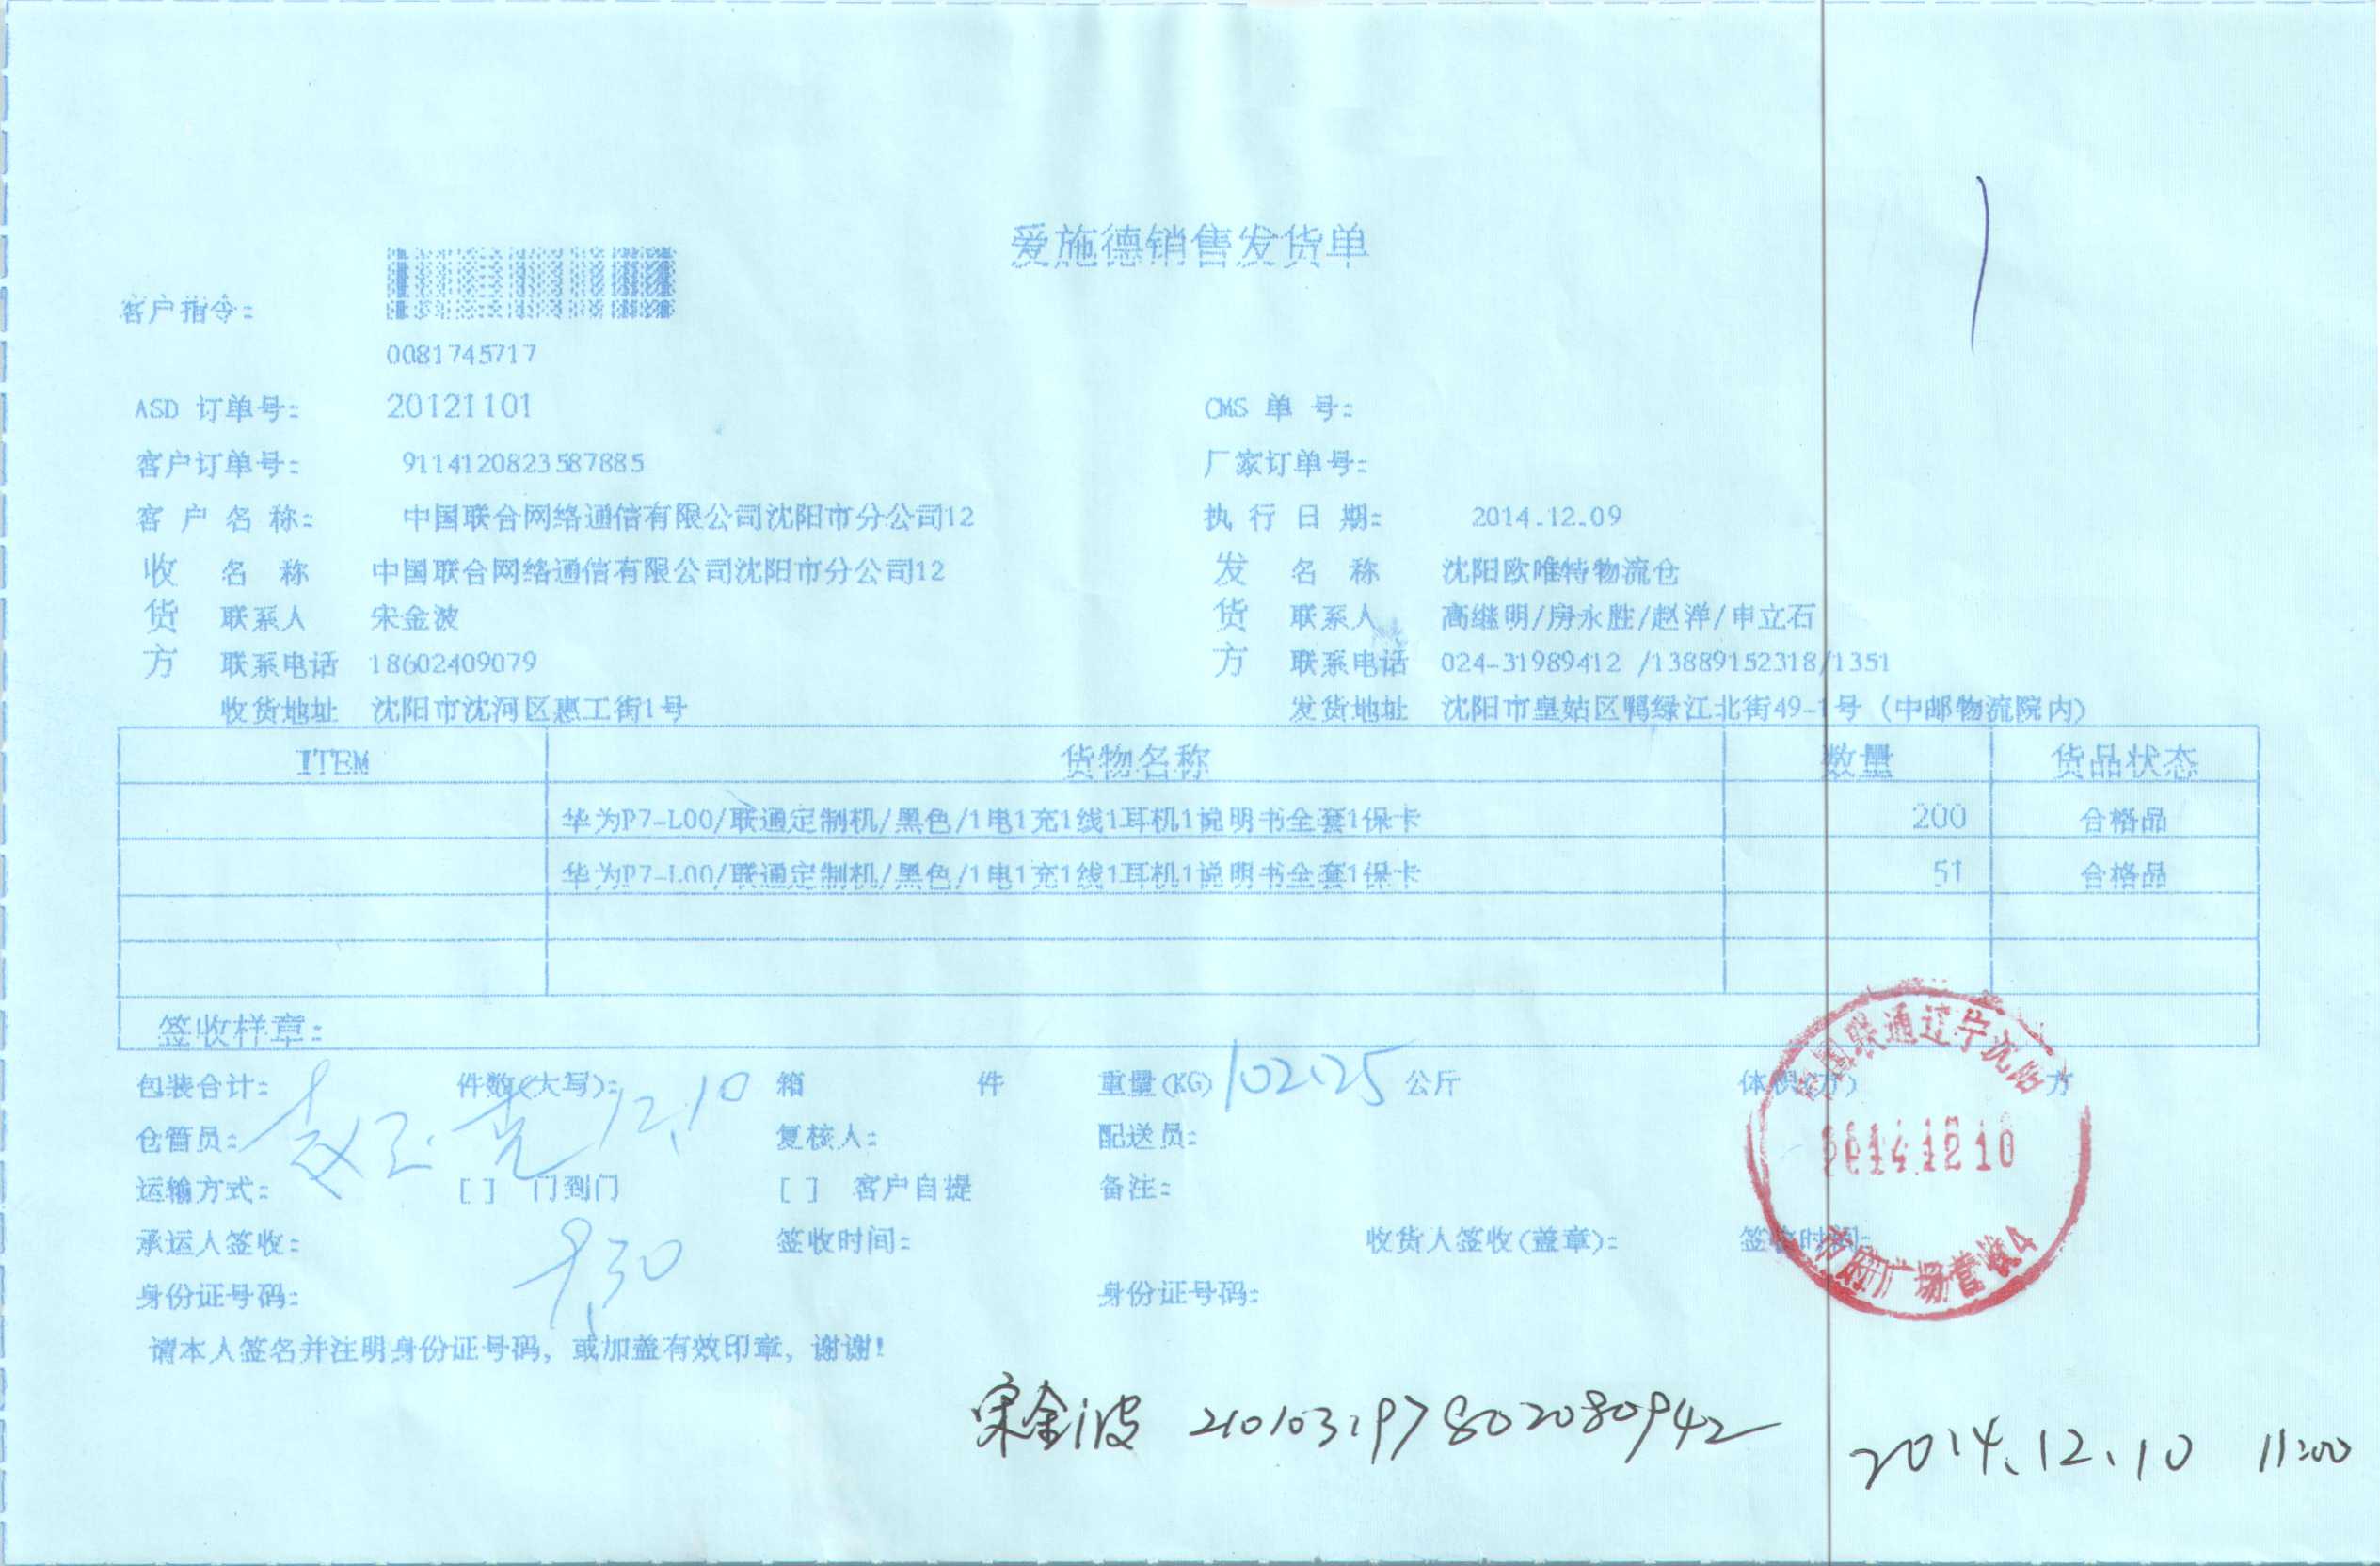 爱施德销售发货单
客户指令:
0081745717
ASD 订单号: 20121101 CMS 单 号:
客户订单号: 9114120823587885 厂家订单号:
客 户 名 称: 中国联合网络通信有限公司沈阳市分公司12 执 行 日 期: 2014.12.09
收 名 称 中国联合网络通信有限公司沈阳市分公司12 发 名 称 沈阳欧唯特物流仓
货 联系人 宋金波 货 联系人 高继明/房永胜/赵洋/申立石
方 联系电话 18602409079 方 联系电话 024-31989412 /13889152318/1351
收货地址 沈阳市沈河区惠工街1号 发货地址 沈阳市皇姑区鸭绿江北街49-1号 (中邮物流院内)
ITEM 货物名称 数量 货品状态
华为P7-L00/联通定制机/黑色/1电1充1线1耳机1说明书全套1保卡 200 合格品
华为P7-L00/联通定制机/黑色/1电1充1线1耳机1说明书全套1保卡 51 合格品
签收样章:
包装合计: 件数(大写): 箱 件 重量(KG) 102.25 公斤 体积(方) 方
仓管员: 12.10 复核人: 配送员:
运输方式: [ ] 门到门 [ ] 客户自提 备注:
承运人签收: 签收时间: 收货人签收(盖章): 签收时间:
9.30
身份证号码: 身份证号码:
请本人签名并注明身份证号码, 或加盖有效印章, 谢谢!
中国联通辽宁沈阳
2014.12.10
市府广场营收4
宋金波 210103197802080942 2014.12.10 11:00